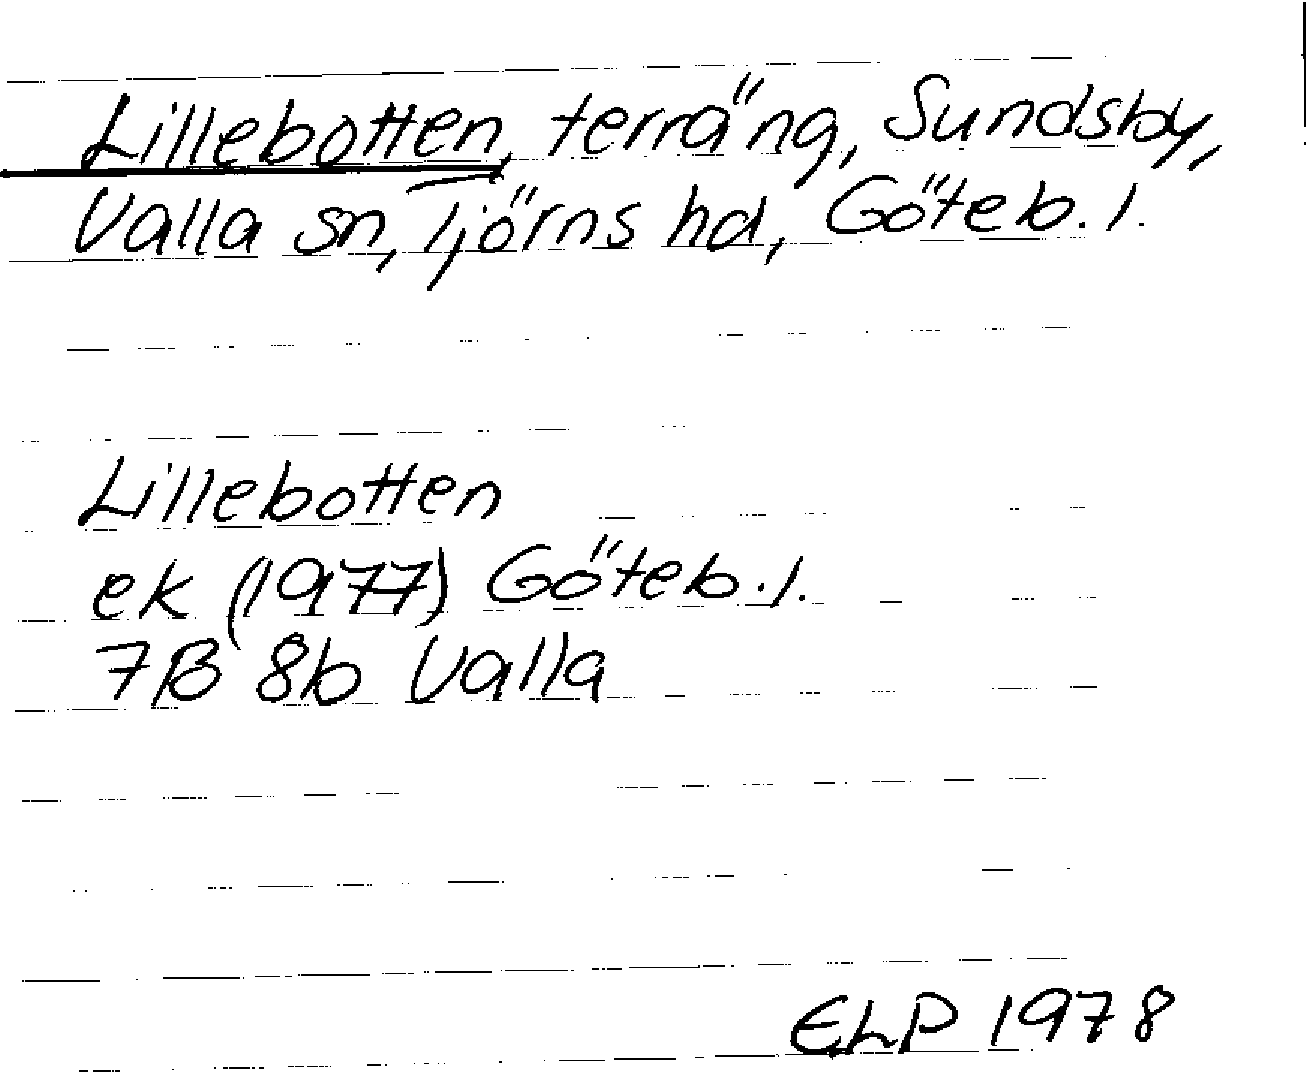 Lillebotten, terräng, Sundsby,
Valla sn, Tjörns hd, Göteb. l.
Lillebotten
ek (1977) Göteb. l.
7B 8b Valla
ELP 1978